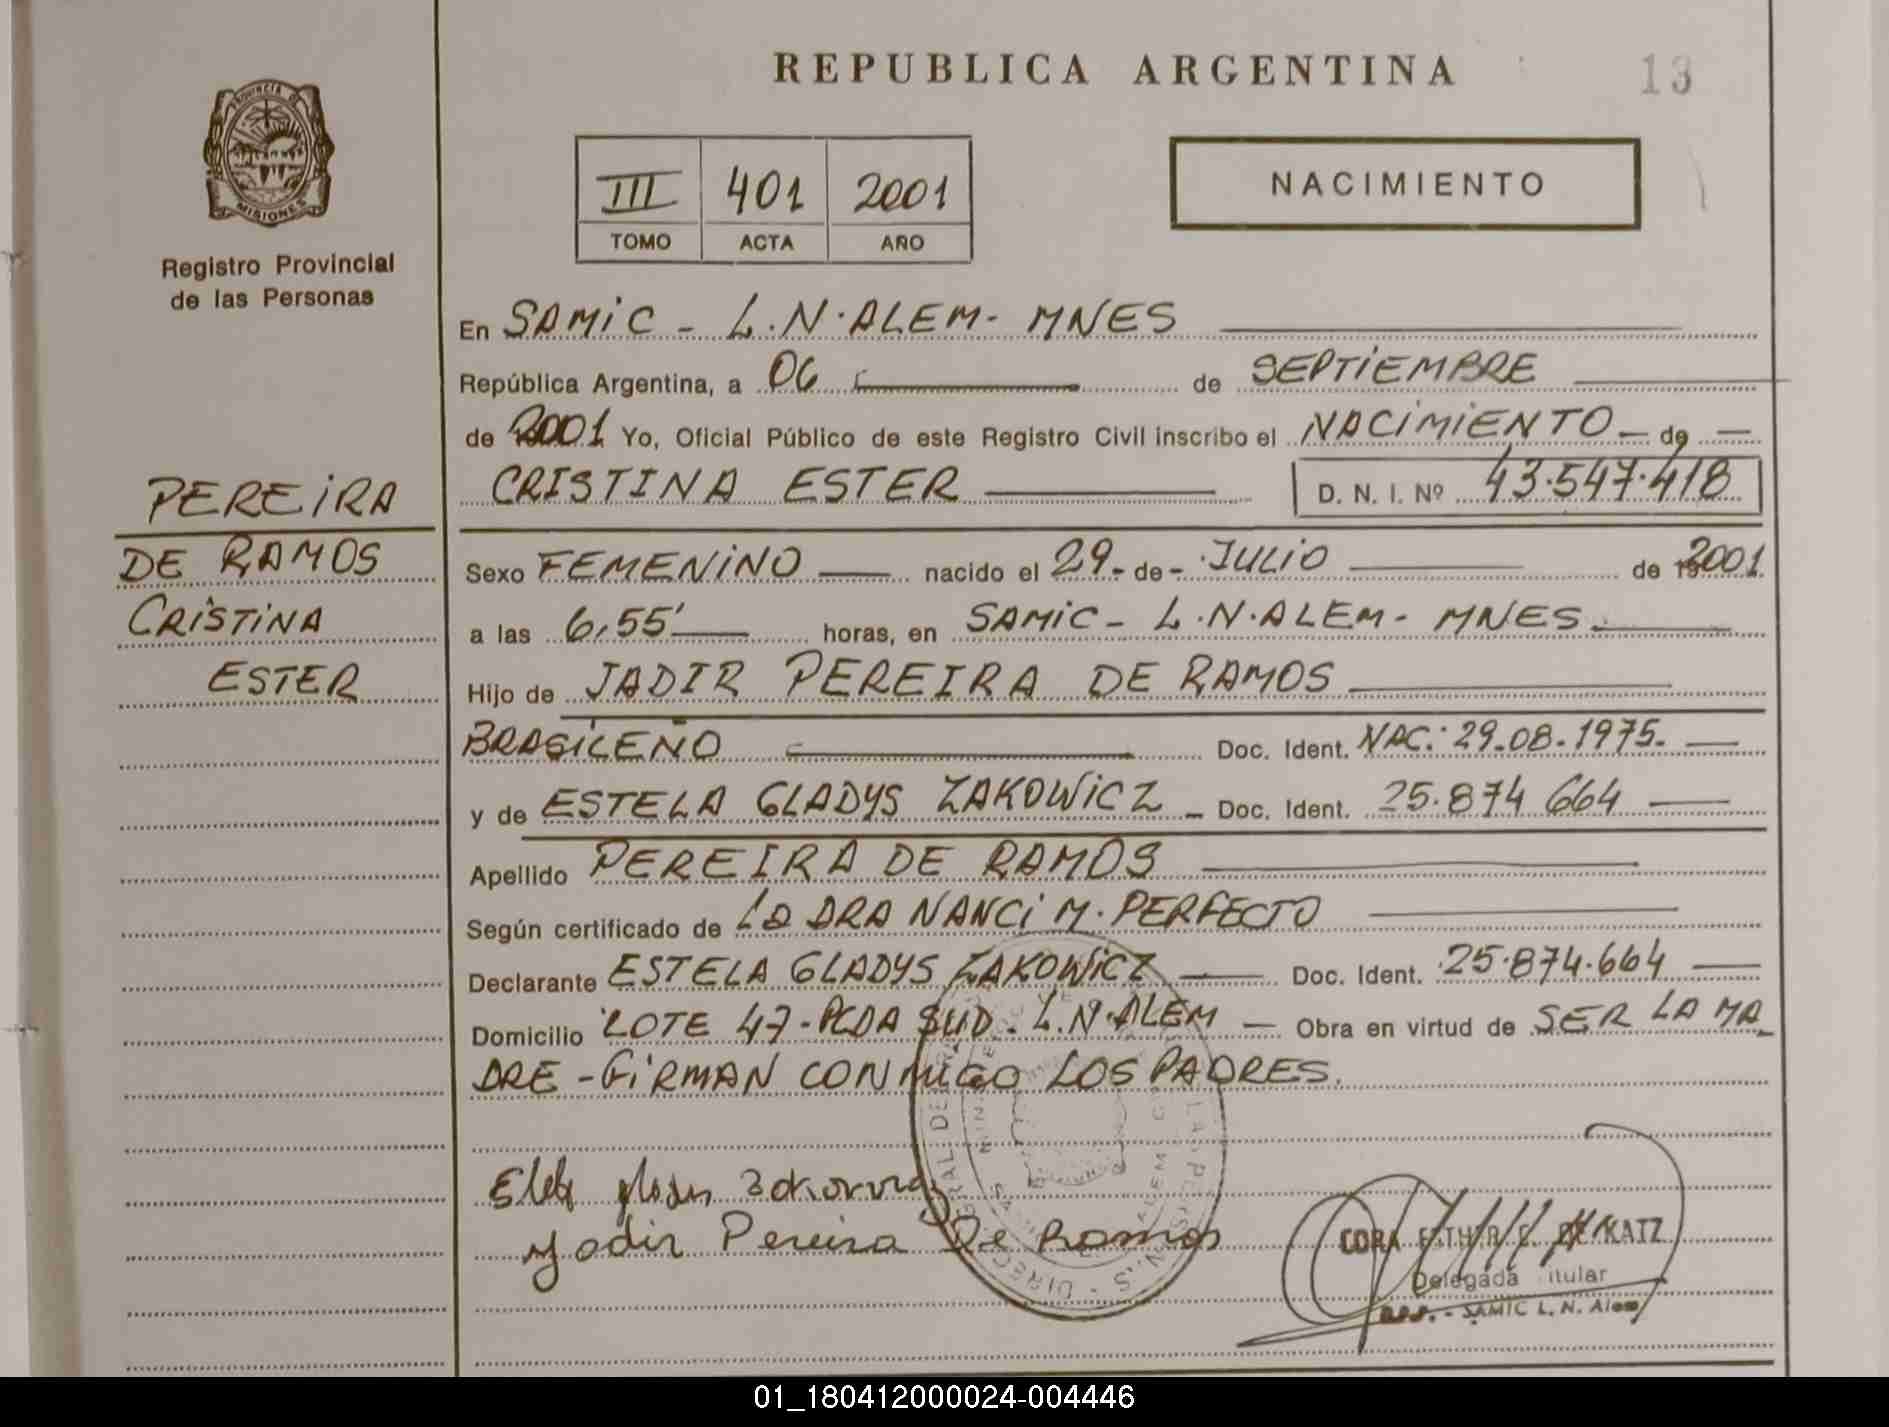 REPUBLICA ARGENTINA
13
PROVINCIA DE
MISIONES
Registro Provincial
de las Personas
III 401 2001
TOMO ACTA AÑO
NACIMIENTO
En SAMIC - L.N. ALEM - MNES
República Argentina, a 06 de SEPTIEMBRE
de 2001 Yo, Oficial Público de este Registro Civil inscribo el NACIMIENTO - de -
CRISTINA ESTER D. N. I. Nº 43.547.418
PEREIRA
DE RAMOS
CRISTINA
ESTER
Sexo FEMENINO nacido el 29 - de - JULIO de 2001
a las 6,55' horas, en SAMIC - L.N. ALEM - MNES.
Hijo de JADIR PEREIRA DE RAMOS
BRASILEÑO Doc. Ident. NAC: 29.08.1975.
y de ESTELA GLADYS ZAKOWICZ - Doc. Ident. 25.874 664
Apellido PEREIRA DE RAMOS
Según certificado de La DRA NANCI M. PERFECTO
Declarante ESTELA GLADYS ZAKOWICZ Doc. Ident. 25.874.664
Domicilio LOTE 47 - PCDA SUD. L.N. ALEM - Obra en virtud de SER LA MA
DRE - FIRMAN CONMIGO LOS PADRES.
Yadir Pereira De Ramos
CORA ESTHER KATZ
Delegada Titular
SAMIC L. N. Alem
01_180412000024-004446